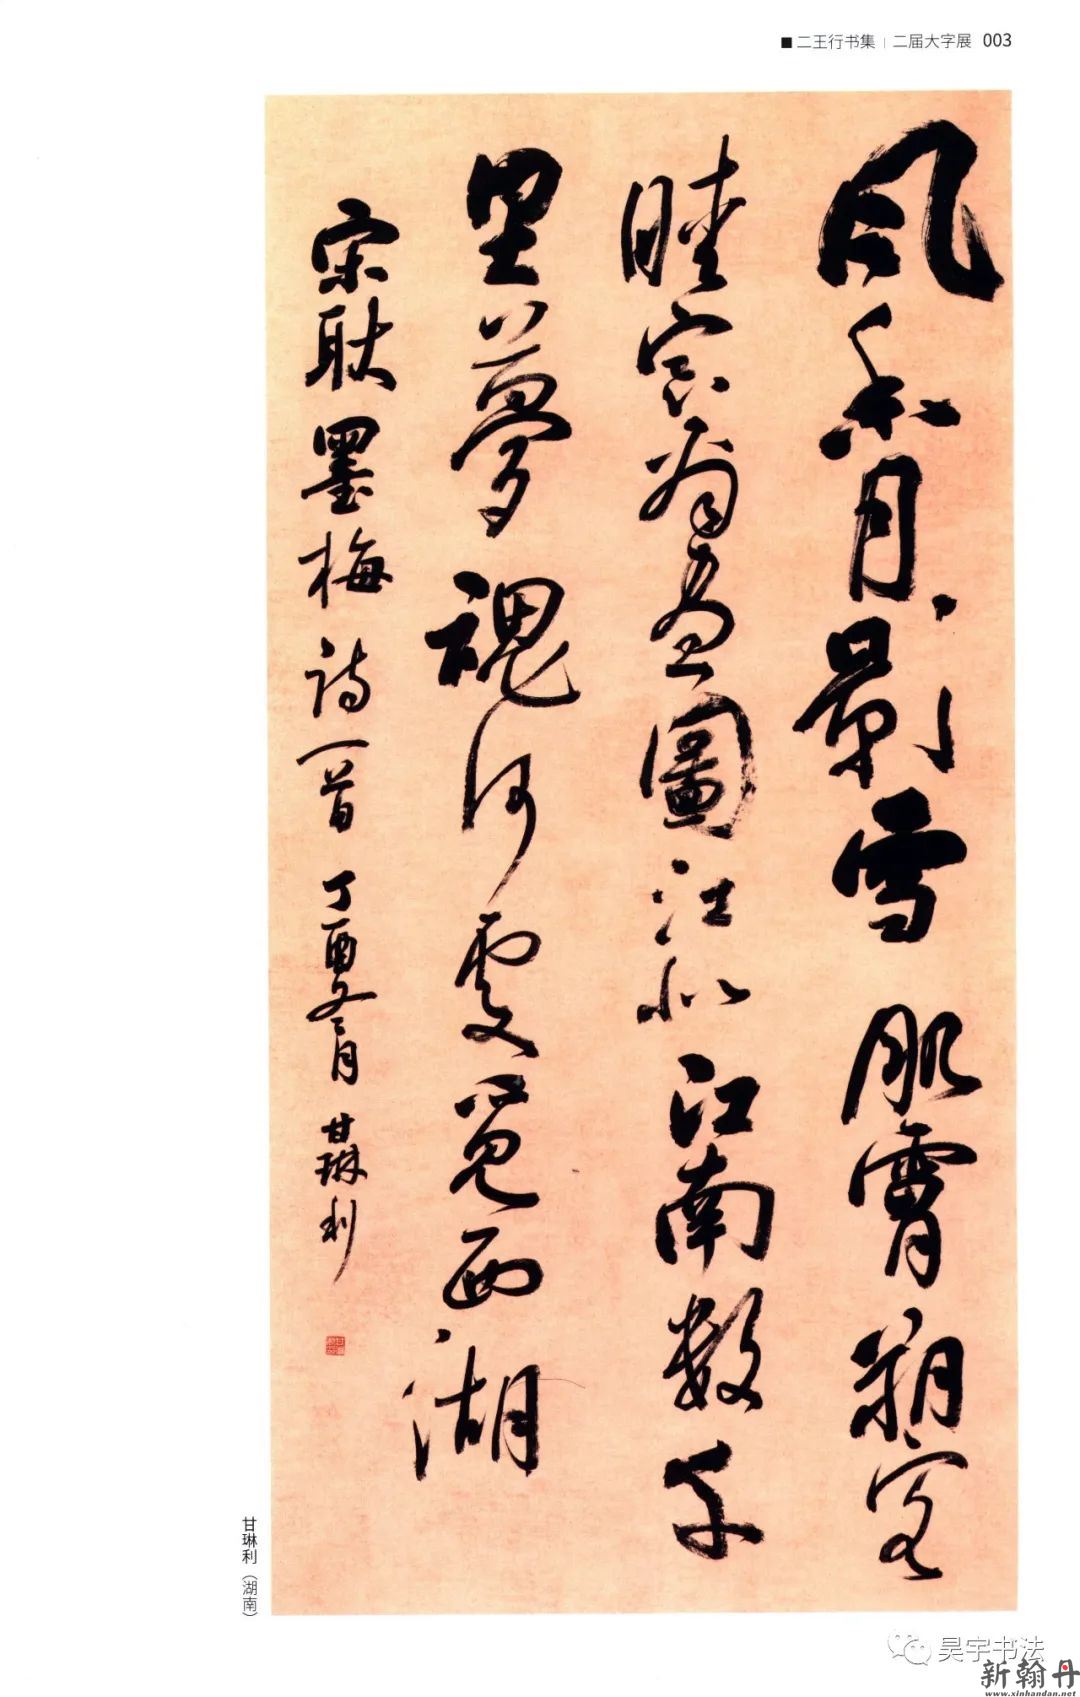 ■二王行书集 | 二届大字展 003
風香月影雪肌膚朔客
畫圖 似江南数千
里夢魂何處覓西湖
宋耿墨梅詩一首 丁酉冬月 甘琳利
甘琳利（湖南）
昊宇书法
新翰丹
www.xinhandan.net